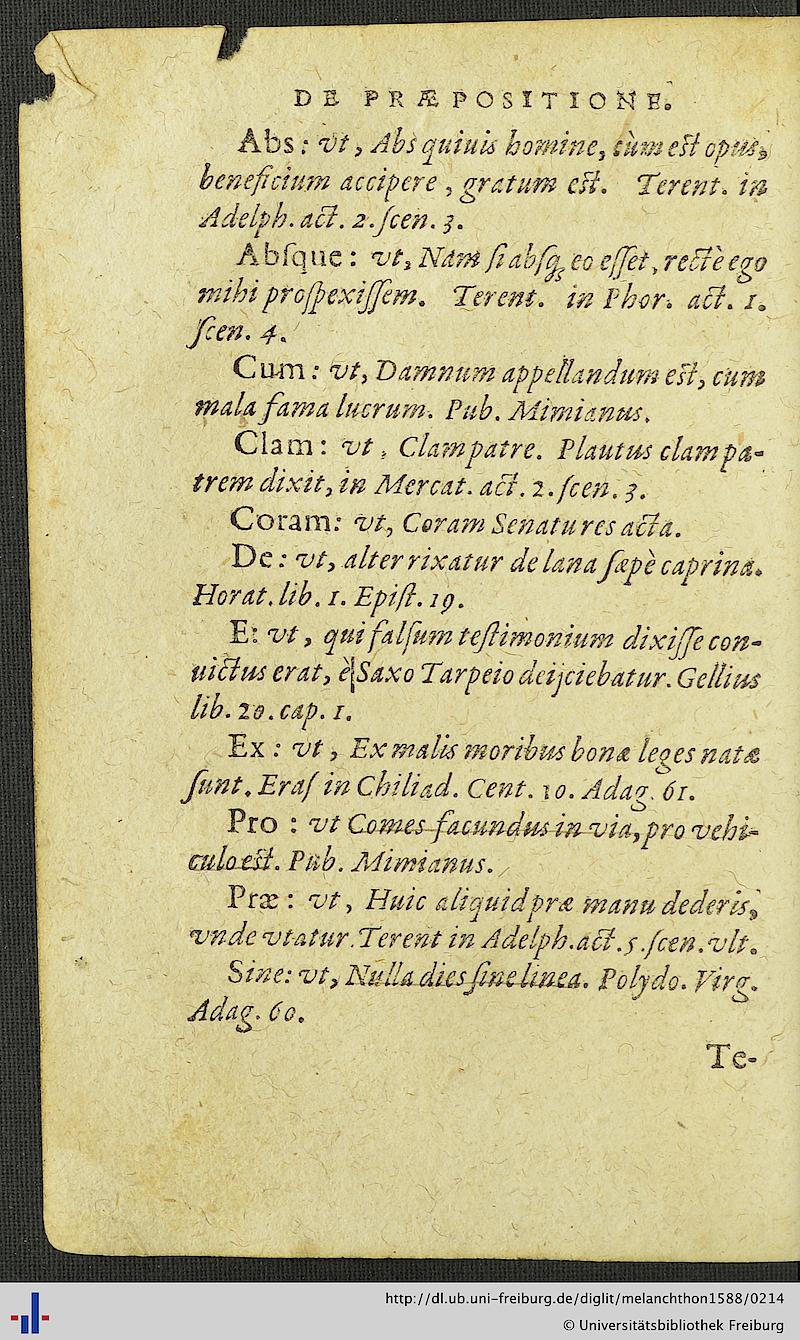 DE PRÆPOSITIONE.
Abs: vt, Abs quiuis homine, cùm est opus,
beneficium accipere, gratum est. Terent. in
Adelph. act. 2. ſcen. 3.
Abſque: vt, Nam ſi abſq; eo eſſet, rectè ego
mihi proſpexiſſem. Terent. in Phor. act. 1.
ſcen. 4.
Cum: vt, Damnum appellandum est, cum
mala fama lucrum. Pub. Mimianus.
Clam: vt, Clam patre. Plautus clam pa-
trem dixit, in Mercat. act. 2. ſcen. 3.
Coram: vt, Coram Senatu res acta.
De: vt, alter rixatur de lana ſæpè caprina.
Horat. lib. 1. Epiſt. 19.
E: vt, qui falſum teſtimonium dixiſſe con-
uictus erat, è Saxo Tarpeio deijciebatur. Gellius
lib. 20. cap. 1.
Ex: vt, Ex malis moribus bonæ leges natæ
ſunt. Eraſ in Chiliad. Cent. 10. Adag. 61.
Pro: vt Comes facundus in via, pro vehi-
culo est. Pub. Mimianus.
Præ: vt, Huic aliquid præ manu dederis,
vnde vtatur. Terent in Adelph. act. 5. ſcen. vlt.
Sine: vt, Nulla dies ſine linea. Polydo. Virg.
Adag. 60.
Te-
http://dl.ub.uni-freiburg.de/diglit/melanchthon1588/0214
© Universitätsbibliothek Freiburg